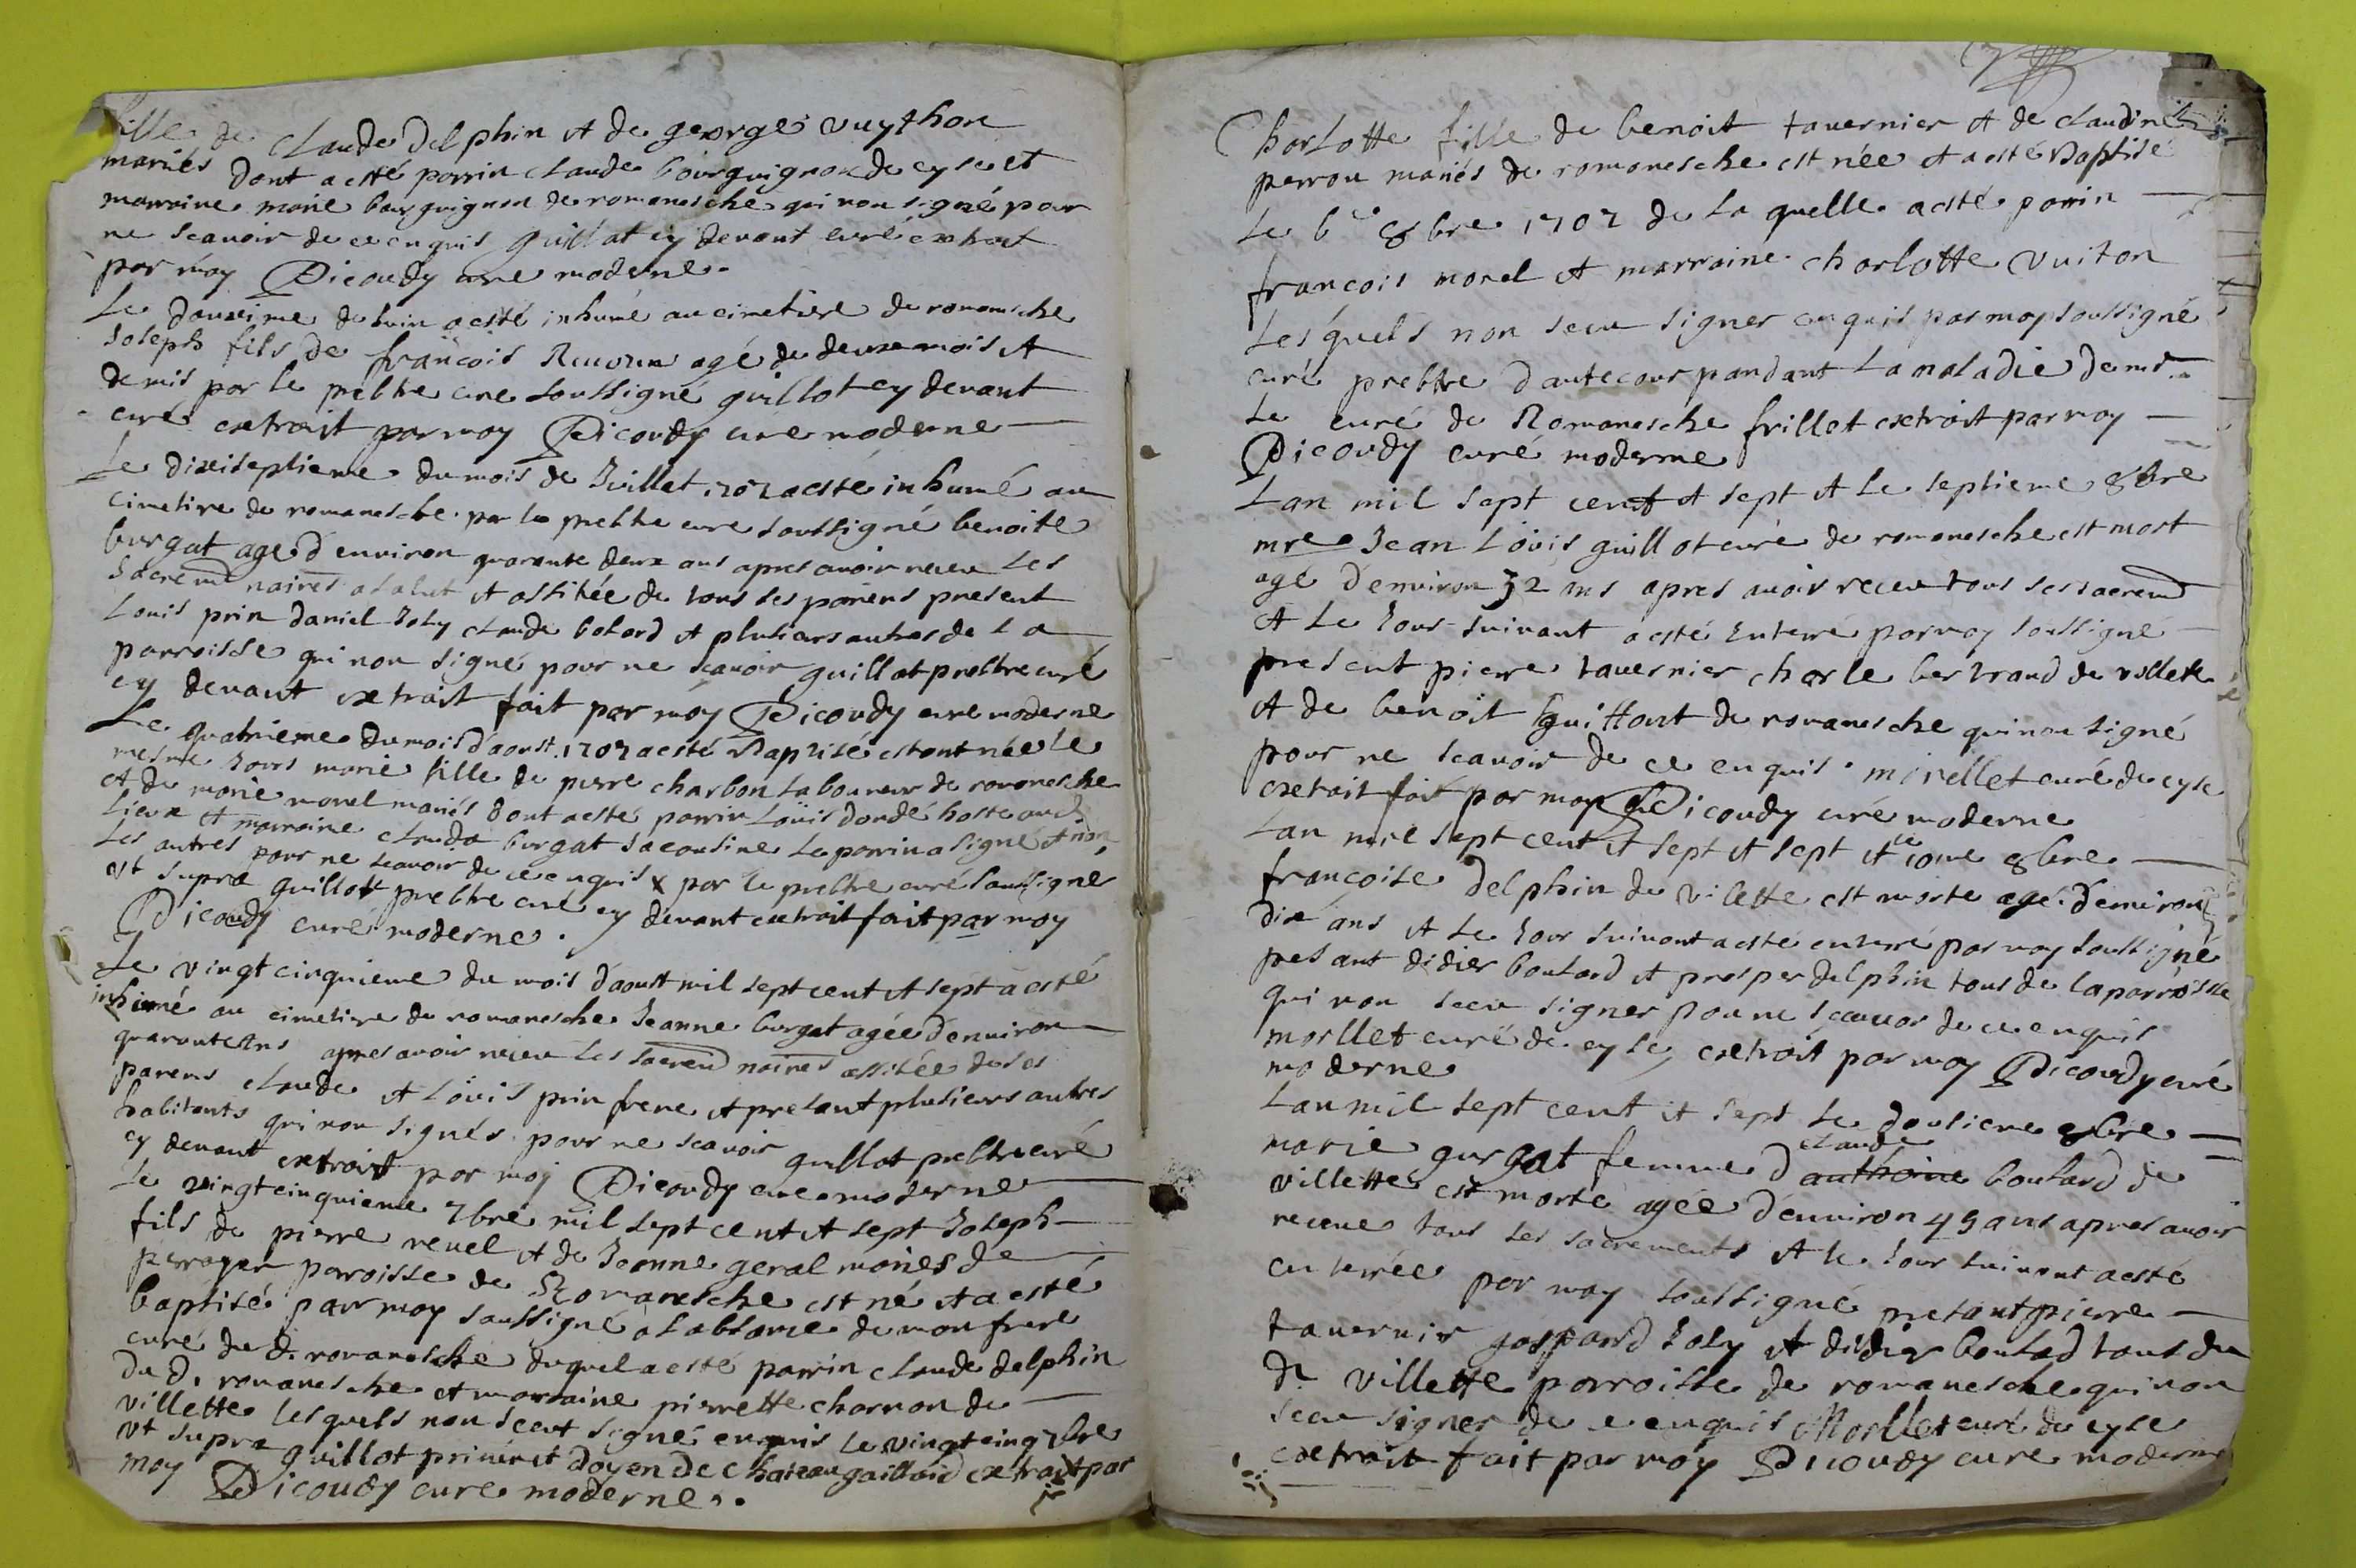 fille de claude delphin et de george vuython
mariés dont a esté parrin claude bourguignon de cyse et
marraine marie bourguignon de romanesche qui non signé pour
ne scavoir de ce enquis guillot cy devant curé extrait
par moy Dicoudy cure moderne.
Le douxime de iuin a esté inhumé au cimetiere de romanesche
Joseph fils de françois agé de deux mois et
demis par le prebtre cure soussigné guillot cy devant
curé extrait par moy Dicoudy cure moderne
Le dixiseptieme du mois de Juillet 1707 a esté inhumé au
cimetire de romanesche par le prebtre cure soussigné benoite
burgat age d'environ quarante deux ans apres avoir receu les
sacremd naires a salut et assitée de tous ses pariens present
Louis prin daniel Joly claude bolard et plusieurs autres de la
parroisse qui non signé pour ne scavoir guillot prebtre curé
cy devant extrait fait par moy Dicoudy cure moderne
Le quatrieme du mois d'aoust 1707 a esté Baptisé estant née le
mesme Jours marie fille de pierre charbon laboureur de romanesche
et de marie morel mariés dont a esté parrin Louis dondé hoste aud
lieux et marraine clauda burgat sa cousine le parrin a signé et non
les autres pour ne scavoir de ce enquis x par le prebtre curé soussigné
vt supra guillot prebtre curé cy devant extrait fait par moy
Dicoudy curé moderne.
Le vingt cinquieme du mois d'aoust mil sept cent et sept a esté
inhumé au cimetire de romanesche Jeanne burgat agée d'environ
quarante ans apres avoir receu les sacremd naires assitée de ses
parens claude et Louis prin frere et presant plusieurs autres
habitants qui non signés pour ne scavoir guillot prebtre curé
cy devant extrait par moy Dicoudy cure moderne
Le vingt cinquieme 7bre mil sept cent et sept Joseph
fils de pierre revel et de Jeanne geral mariés de
perroyan paroisse de Romanesche est né et a esté
baptisé parr moy soussigné a labsance de mon frere
curé du d. romanesche duquel a esté parrin claude delphin
du d. romanesche et marraine pierrette charnon de
villette lesquels non sceut signé enquis le vingt cinq 7bre
vt supra guillot doyen de chateau gaillard extrait par
moy Dicoudy cure moderne.
Charlotte fille de benoit tavernier et de claudine
perrou mariés de romanesche est née et a esté Baptisé
Le 6e 8bre 1707 de la quelle a esté parrin
françois morel et marraine charlotte vuiton
Lesquels non sceu signer enquis par moy soussigné
curé prebtre d'autecour pandant la maladie de mr
le curé de Romanesche frillet extrait par moy
Dicoudy curé moderne
Lan mil sept cent et sept et le septieme 8bre
mre Jean Louis guillot curé de romanesche est mort
agé d'environ 32 ans apres avoir receu tous ses sacremd
et le Jour suivant a esté enterré par moy soussigné
present pierre tavernier charle bertrand de villette
et de benoit guittont de romanesche qui non signé
pour ne scavoir de ce enquis. morellet curé de cyse
extrait fait par moy Dicoudy curé moderne
Lan mil sept cent et sept et sept et le 8bre
françoise delphin de vilette est morte agé d'environ
dix ans et le Jour suivant a esté enterré par moy soussigné
pesant didier boulard et prosper delphin tous de la parroisse
qui non sceu signer pour ne scavoir de ce enquis
morllet curé de cyse, extrait par moy Dicoudy curé
moderne
Lan mil sept cent et sept le dousieme 8bre
claude
marie gurgat femme d authoine boulard de
villette est morte agée d'environ 49 ans apres avoir
receue tous les sacrements et le Jour suivant a esté
enterrée par moy soussigné presant pierre
tavernier gaspard Joly et didier boulad tous du
de villette parroisse de romanesche qui non
sceu signer de ce enquis Morllet curé de cyse
extrait fait par moy Dicoudy cure moderne